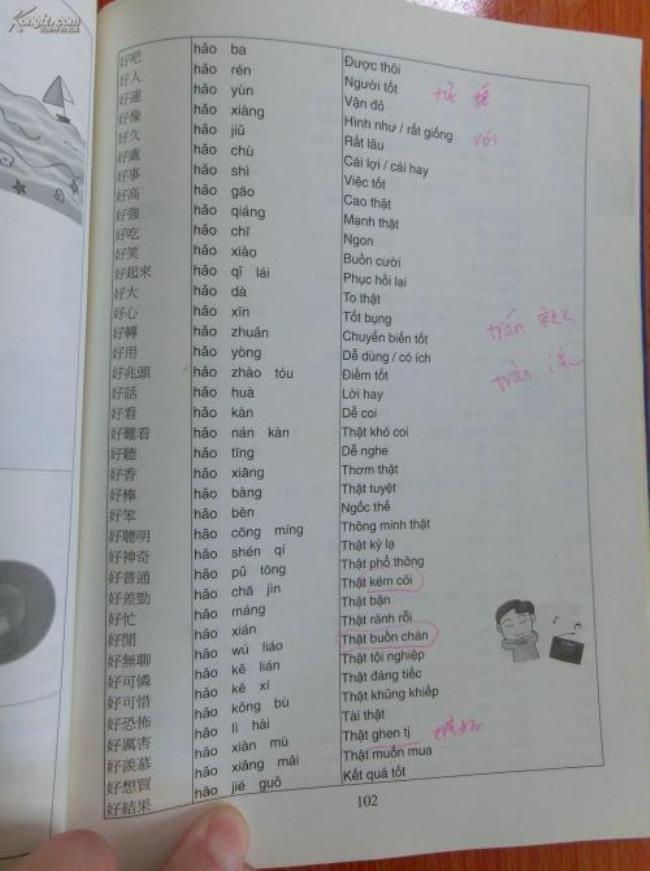 Kongfz.com
好吧 hǎo ba Được thôi
好人 hǎo rén Người tốt tử tế
好運 hǎo yùn Vận đỏ
好像 hǎo xiàng Hình như / rất giống
好久 hǎo jiǔ Rất lâu
好處 hǎo chù Cái lợi / cái hay
好事 hǎo shì Việc tốt
好高 hǎo gāo Cao thật
好強 hǎo qiáng Mạnh thật
好吃 hǎo chī Ngon
好笑 hǎo xiào Buồn cười
好起來 hǎo qǐ lái Phục hồi lại
好大 hǎo dà To thật
好心 hǎo xīn Tốt bụng
好轉 hǎo zhuǎn Chuyển biến tốt trấn
好用 hǎo yòng Dễ dùng / có ích
好兆頭 hǎo zhào tóu Điềm tốt trần
好話 hǎo huà Lời hay
好看 hǎo kàn Dễ coi
好難看 hǎo nán kàn Thật khó coi
好聽 hǎo tīng Dễ nghe
好香 hǎo xiāng Thơm thật
好棒 hǎo bàng Thật tuyệt
好笨 hǎo bèn Ngốc thế
好聰明 hǎo cōng míng Thông minh thật
好神奇 hǎo shén qí Thật kỳ lạ
好普通 hǎo pǔ tōng Thật phổ thông
好差勁 hǎo chā jìn Thật kém cỏi
好忙 hǎo máng Thật bận
好閒 hǎo xián Thật rảnh rỗi
好無聊 hǎo wú liáo Thật buồn chán
好可憐 hǎo kě lián Thật tội nghiệp
好可惜 hǎo kě xí Thật đáng tiếc
好恐怖 hǎo kǒng bù Thật khủng khiếp
好厲害 hǎo lì hài Tài thật
好羨慕 hǎo xiàn mù Thật ghen tị
好想買 hǎo xiǎng mǎi Thật muốn mua
好結果 hǎo jié guǒ Kết quả tốt
102